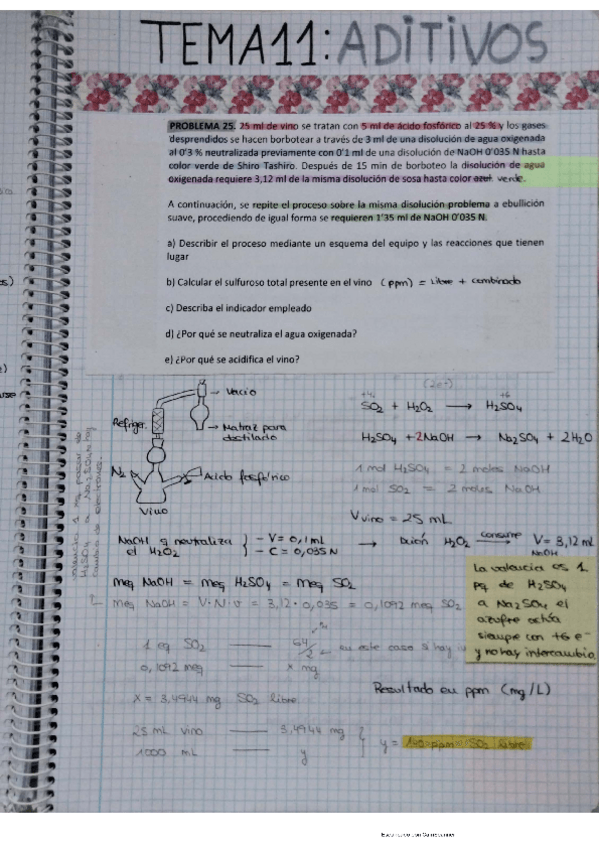 TEMA 11: ADITIVOS
PROBLEMA 25. 25 ml de vino se tratan con 5 ml de ácido fosfórico al 25 % y los gases
desprendidos se hacen borbotear a través de 3 ml de una disolución de agua oxigenada
al 0'3 % neutralizada previamente con 0'1 ml de una disolución de NaOH 0'035 N hasta
color verde de Shiro Tashiro. Después de 15 min de borboteo la disolución de agua
oxigenada requiere 3,12 ml de la misma disolución de sosa hasta color azul. verde.
A continuación, se repite el proceso sobre la misma disolución problema a ebullición
suave, procediendo de igual forma se requieren 1'35 ml de NaOH 0'035 N.
a) Describir el proceso mediante un esquema del equipo y las reacciones que tienen
lugar
b) Calcular el sulfuroso total presente en el vino (ppm) = Libre + combinado
c) Describa el indicador empleado
d) ¿Por qué se neutraliza el agua oxigenada?
e) ¿Por qué se acidifica el vino?
→ Vacío
Refriger.
→ Matraz para
destilado
N2
Ácido fosfórico
Vino
(2e-)
+4 +6
SO2 + H2O2 → H2SO4
H2SO4 + 2NaOH → Na2SO4 + 2H2O
1 mol H2SO4 = 2 moles NaOH
1 mol SO2 = 2 moles NaOH
V vino = 25 mL
NaOH q neutraliza
el H2O2
- V = 0,1 mL
- C = 0,035 N
→ H2O2 consume → V = 3,12 mL
NaOH
meq NaOH = meq H2SO4 = meq SO2
meq NaOH = V·N·v = 3,12 · 0,035 = 0,1092 meq SO2
La valencia es 1
pq de H2SO4
a Na2SO4 el
azufre
siempre con +6 e-
y no hay intercambio
1 eq SO2 —— 64/2 ← en este caso sí hay
0,1092 meq —— x mg
x = 3,4944 mg SO2 libre
Resultado en ppm (mg/L)
25 mL vino —— 3,4944 mg
1000 mL —— y
y = ppm SO2 libre
Escaneado con CamScanner